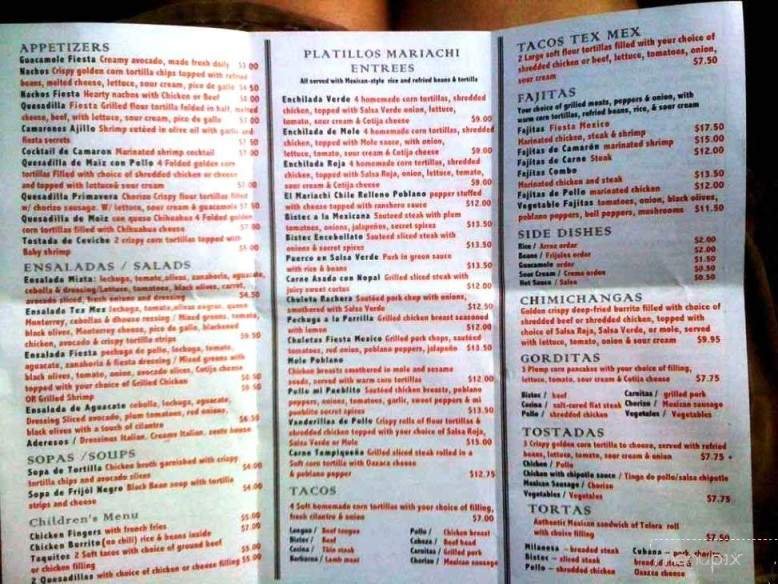 APPETIZERS
Guacamole Fiesta Creamy avocado, made fresh daily
Nachos Crispy golden corn tortilla chips topped with refried
beans, melted cheese, lettuce, sour cream, pico de gallo
Nachos Fiesta Hearty nachos with Chicken or Beef
Quesadilla Fiesta Grilled flour tortilla folded in half, melted
cheese, beef, with lettuce, sour cream, pico de gallo
Camarones Ajillo Shrimp sautéed in olive oil with garlic and
fiesta secrets
Cocktail de Camaron Marinated shrimp cocktail
Quesadilla de Maiz con Pollo 4 Folded golden corn
tortillas Filled with choice of shredded chicken or cheese
and topped with lettuce& sour cream
Quesadilla Primavera Chorizo Crispy flour tortillas filled
w/ chorizo sausage. W/ lettuce, sour cream & guacamole
Quesadilla de Maiz con queso Chihuahua 4 Folded golden
corn tortillas filled with Chihuahua cheese
Tostada de Ceviche 2 crispy corn tortillas topped with
Baby shrimp
ENSALADAS / SALADS
Ensalada Mixta: lechuga, tomate, olivas, zanahoria, aguacate,
cebolla & dressing/Lettuce, tomatoes, black olives, carrot,
avocado sliced, fresh onions and dressing $4.50
Ensalada Tex Mex lechuga, tomate, olivas negras, queso
Monterrey, cebollas & dressing / Mixed greens, tomato,
black olives, Monterrey cheese, pico de gallo, blackened
chicken, avocado & crispy tortilla strips
Ensalada Fiesta pechuga de pollo, lechuga, tomate,
aguacate, zanahoria & fiesta dressing / Mixed greens with
black olives, tomato, onion, avocado slices, Cotija cheese
topped with your choice of Grilled Chicken
OR Grilled Shrimp
Ensalada de Aguacate cebolla, lechuga, aguacate,
Dressing Sliced avocado, plum tomatoes, red onions,
black olives with a touch of cilantro
Aderesos / Dressings Italian, Creamy Italian,
SOPAS /SOUPS
Sopa de Tortilla Chicken broth garnished with crispy
tortilla chips and avocado slices $4.00
Sopa de Frijol Negro Black Bean soup with tortilla
strips and cheese $4.00
Children's Menu
Chicken Fingers with french fries $5.00
Chicken Burrito (no chili) rice & beans inside
Taquitos 2 Soft tacos with choice of ground beef
or chicken filling
2 Quesadillas with choice of chicken or cheese filling $5.00
PLATILLOS MARIACHI
ENTREES
All served with Mexican-style rice and refried beans & tortilla
Enchilada Verde 4 homemade corn tortillas, shredded
chicken, topped with Salsa Verde onion, lettuce,
tomato, sour cream & Cotija cheese $9.00
Enchilada de Mole 4 homemade corn tortillas, shredded
chicken, topped with Mole sauce, with onion,
lettuce, tomato, sour cream & Cotija cheese $9.00
Enchilada Roja 4 homemade corn tortillas, shredded
chicken, topped with Salsa Roja, onion, lettuce, tomato,
sour cream & Cotija cheese $9.00
El Mariachi Chile Relleno Poblano pepper stuffed
with cheese topped with ranchero sauce $12.00
Bistec a la Mexicana Sauteed steak with plum
tomatoes, onions, jalapeños, secret spices $13.50
Bistec Encebollado Sauteed sliced steak with
onions & secret spices $13.50
Puerco en Salsa Verde Pork in green sauce
with rice & beans $13.50
Carne Asada con Nopal Grilled sliced steak with
juicy sweet cactus $12.00
Chuleta Rachera Sautéed pork chop with onions,
smothered with Salsa Verde $12.50
Pechuga a la Parrilla Grilled chicken breast seasoned
with lemon $12.00
Chuletas Fiesta Mexico Grilled pork chops, sautéed
tomatoes, red onion, poblano peppers, jalapeño $13.50
Mole Poblano
Chicken breasts smothered in mole and sesame
seeds, served with warm corn tortillas $12.00
Pollo mi Pueblito Sautéed chicken breasts, poblano
peppers, onions, tomatoes, garlic, sweet peppers & mi
pueblito secret spices $13.50
Vanderillas de Pollo Crispy rolls of flour tortillas &
shredded chicken topped with your choice of Salsa Roja,
Salsa Verde or Mole $15.00
Carne Tampiqueña Grilled sliced steak rolled in a
Soft corn tortilla with Oaxaca cheese
& poblano pepper $12.75
TACOS
4 Soft homemade corn tortillas with your choice of filling,
fresh cilantro & onion $7.00
Lengua / Beef tongue Pollo / Chicken breast
Bistec / Beef Cabeza / Beef head
Cecina / Thin steak Carnitas / Grilled pork
Barbacoa / Lamb meat Chorizo / Mexican sausage
TACOS TEX MEX
2 Large soft flour tortillas filled with your choice of
shredded chicken or beef, lettuce, tomatoes, onion,
sour cream $7.50
FAJITAS
Your choice of grilled meats, peppers & onion, with
warm corn tortillas, refried beans, rice, & sour cream
Fajitas Fiesta Mexico
Marinated chicken, steak & shrimp $17.50
Fajitas de Camarón marinated shrimp $15.00
Fajitas de Carne Steak $12.00
Fajitas Combo
Marinated chicken and steak $13.50
Fajitas de Pollo marinated chicken $12.00
Vegetable Fajitas tomatoes, onion, black olives,
poblano peppers, bell peppers, mushrooms $11.50
SIDE DISHES
Rice / Arroz order $2.00
Beans / Frijoles order $2.00
Guacamole order $1.50
Sour Cream / Crema orden $0.50
Hot Sauce / Salsa $0.50
CHIMICHANGAS
Golden crispy deep-fried burrito filled with choice of
shredded beef or shredded chicken, topped with
choice of Salsa Roja, Salsa Verde, or mole, served
with lettuce, tomato, onion & sour cream $9.95
GORDITAS
3 Plump corn pancakes with your choice of filling,
lettuce, tomato, sour cream & Cotija cheese $7.75
Bistec / beef Carnitas / grilled pork
Cecina / salt-cured flat steak Chorizo / Mexican sausage
Pollo / shredded chicken Vegetales / Vegetables
TOSTADAS
3 Crispy golden corn tortilla to cheese, served with refried
beans, lettuce, tomato, sour cream & onion $7.75
Chicken / Pollo
Chicken with chipotle sauce / Tinga de pollo/salsa chipotle
Mexican Sausage / Chorizo
Vegetables / Vegetales $7.75
TORTAS
Authentic Mexican sandwich of Telera roll
with choice filling $7.50
Milanesa – breaded steak Cubana – pork, chorizo,
Bistec – sliced steak
Pollo – shredded chicken Oaxaca cheese
menupix